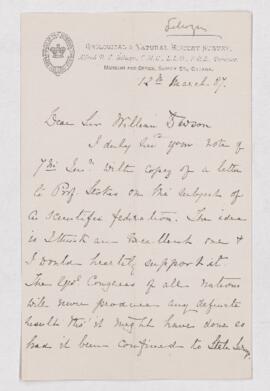 Selwyn
GEOLOGICAL & NATURAL HISTORY SURVEY,
Alfred R. C. Selwyn, C.M.G., L.L.D., F.R.S., Director.
MUSEUM AND OFFICE, SUSSEX ST., OTTAWA.
12th March. 87.
Dear Sir William Dawson
I duly recd your note of
7th Inst. with copy of a letter
to Prof. Stokes on the subject of
a scientific federation. The idea
is I think an excellent one &
I would heartily support it.
The Geol. Congress of all nations
will never produce any definite
results tho' it might have done so
had it been confined to State Surveys